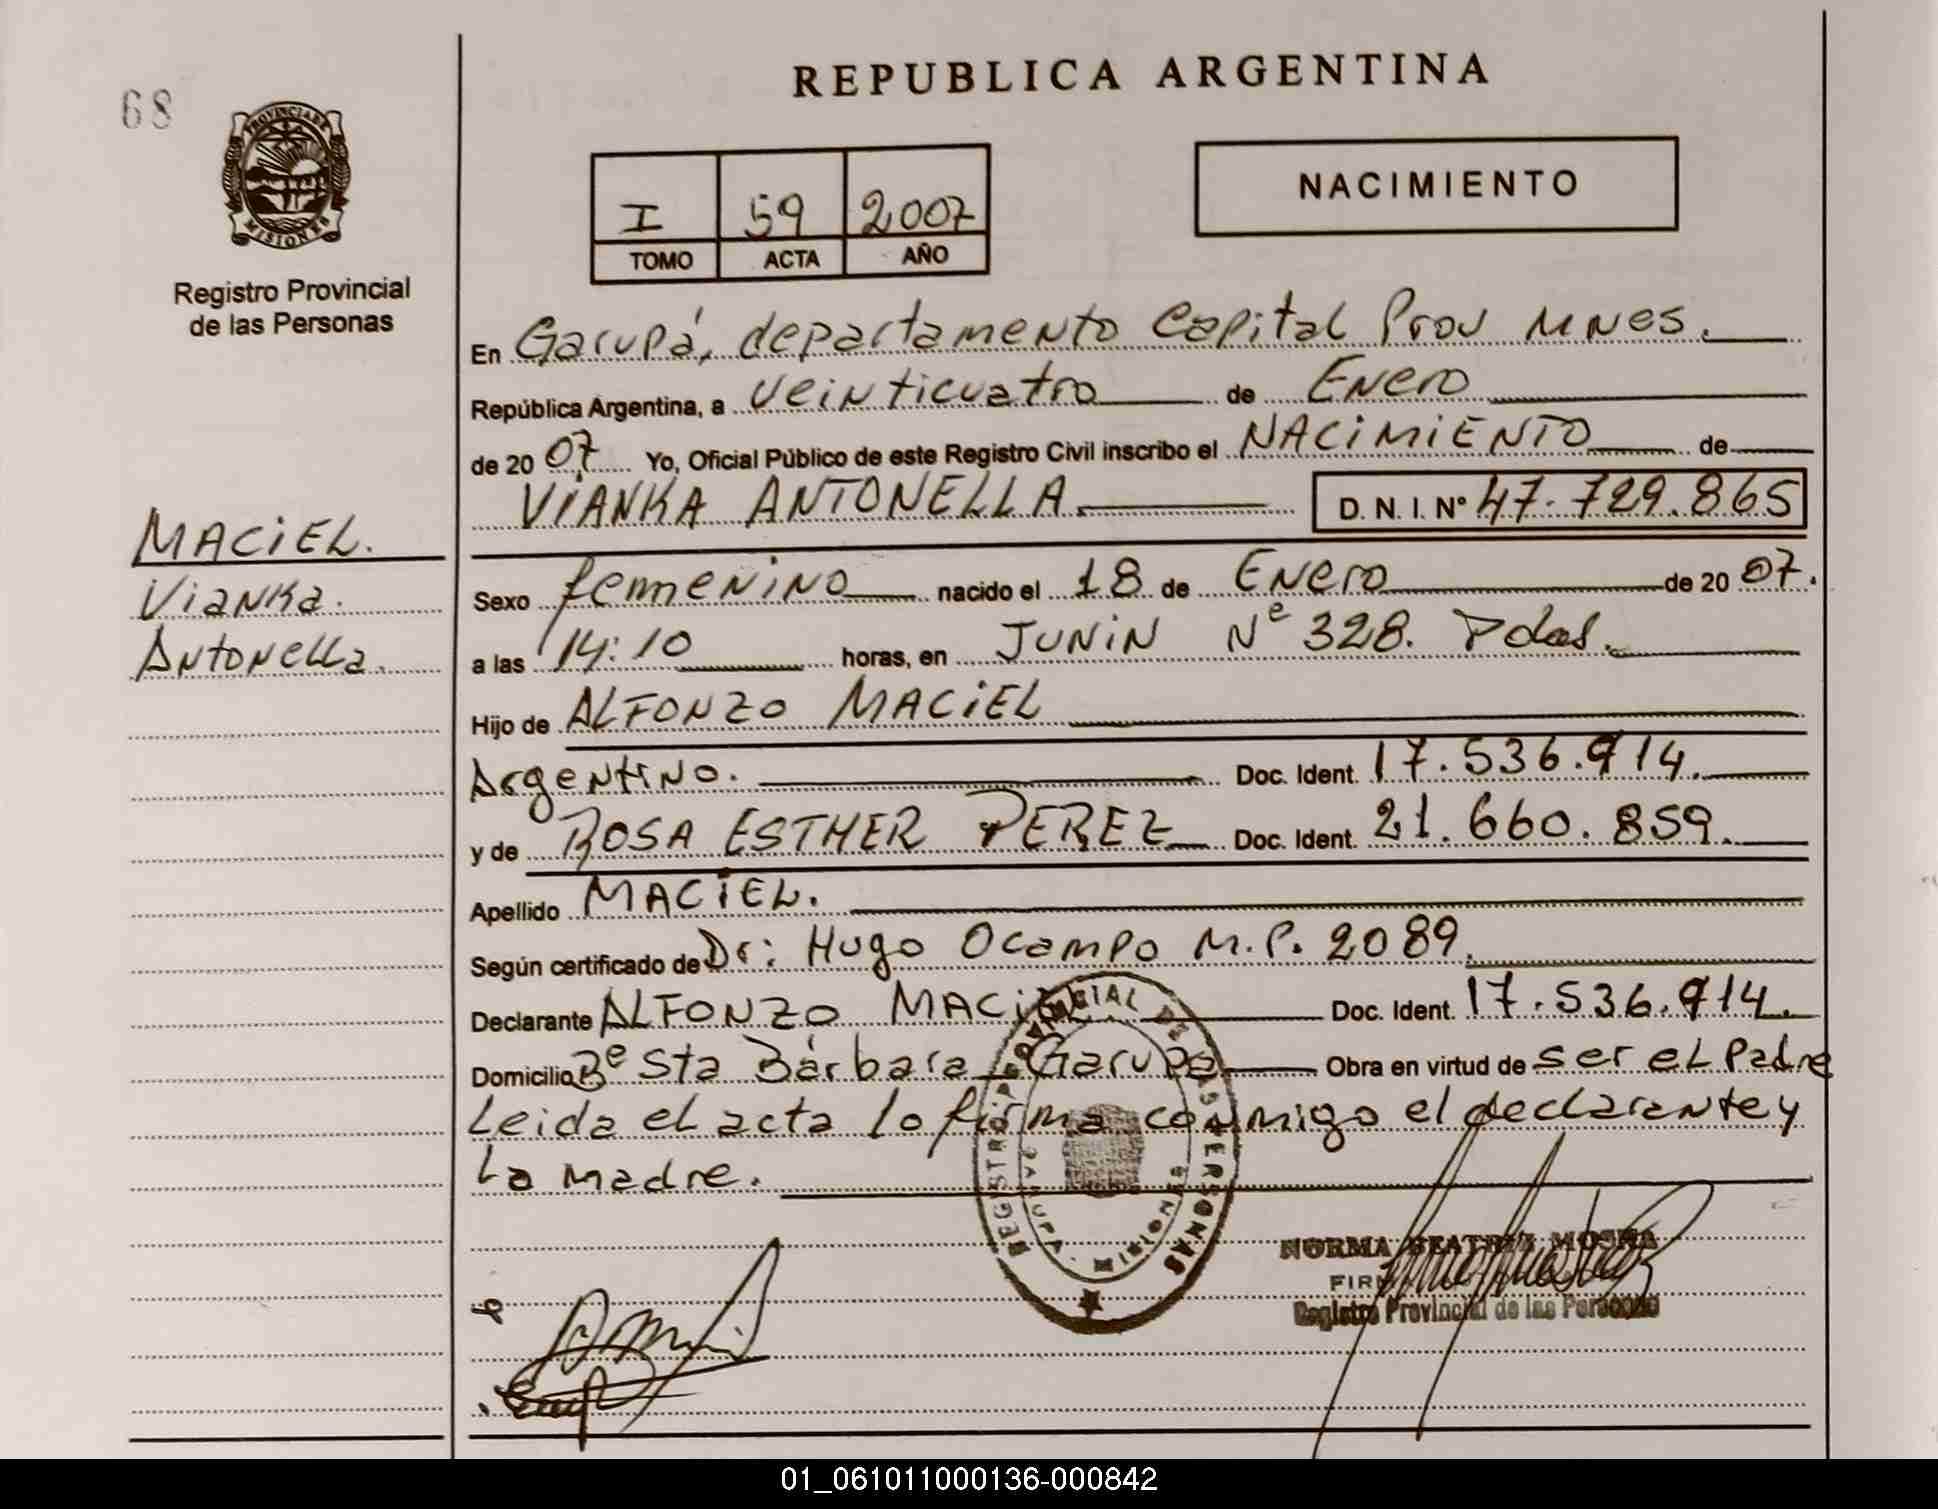 REPUBLICA ARGENTINA
68
PROVINCIA DE
MISIONES
Registro Provincial
de las Personas
NACIMIENTO
I 59 2007
TOMO ACTA AÑO
En Garupá, departamento Capital Prov MNES.
República Argentina, a veinticuatro de Enero
de 2007. Yo, Oficial Público de este Registro Civil inscribo el NACIMIENTO de
VIANKA ANTONELLA. D. N. I. N° 47.729.865
MACIEL.
Vianka.
Antonella.
Sexo femenino nacido el 18 de Enero de 2007.
a las 14:10 horas, en JUNIN Nº 328. Pdas.
Hijo de ALFONZO MACIEL
Argentino. Doc. Ident. 17.536.914.
y de ROSA ESTHER PEREZ Doc. Ident. 21.660.859.
Apellido MACIEL.
Según certificado de Dr: Hugo Ocampo M.P. 2089.
Declarante ALFONZO MACIEL Doc. Ident. 17.536.914.
Domicilio Bº Sta Bárbara Garupá Obra en virtud de ser el Padre
Leida el acta lo firma conmigo el declarante y
la madre.
REGISTRO PROVINCIAL DE LAS PERSONAS
GARUPA - MISIONES
NORMA BEATRIZ
Registro Provincial de las Personas
01_061011000136-000842